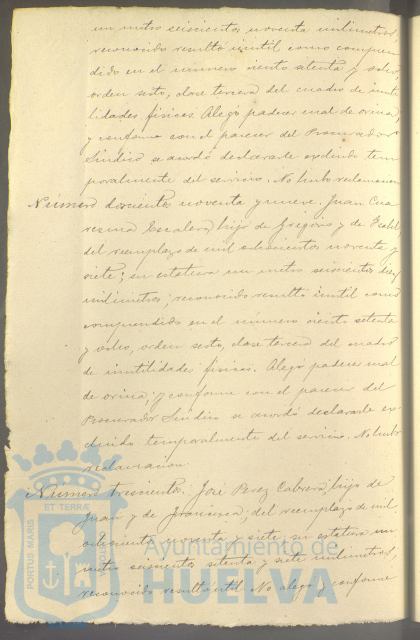 un metro seiscientos noventa milimetros,
reconocido resultó inutil como compren
dido en el número ciento setenta y ocho,
orden sesto, clase tercera del cuadro de inuti
lidades físicas. Alegó padecer mal de orina,
y conforme con el parecer del Procurador
Síndico se acordó declararle excluido tem
poralmente del servicio. No hubo reclamacion
Número doscientos noventa y nueve. Juan Cua
resma Escalera, hijo de Gregorio y de Isabel
del reemplazo de mil ochocientos noventa y
siete; su estatura un metro seiscientos diez
milimetros; reconocido resultó inutil como
comprendido en el número ciento setenta
y ocho, orden sesto, clase tercera del cuadro
de inutilidades físicas. Alegó padecer mal
de orina; y conforme con el parecer del
Procurador Síndico se acordó declararle es
cluido temporalmente del servicio. No hubo
reclamacion
Número trescientos. José Perez Cabrera, hijo de
Juan y de Francisca; del reemplazo de mil
ochocientos noventa y siete, su estatura un
metro seiscientos setenta y siete milimetros,
reconocido resultó util. No alegó y conforme
PORTUS MARIS
ET TERRÆ
CUSTODIA
Ayuntamiento de
HUELVA